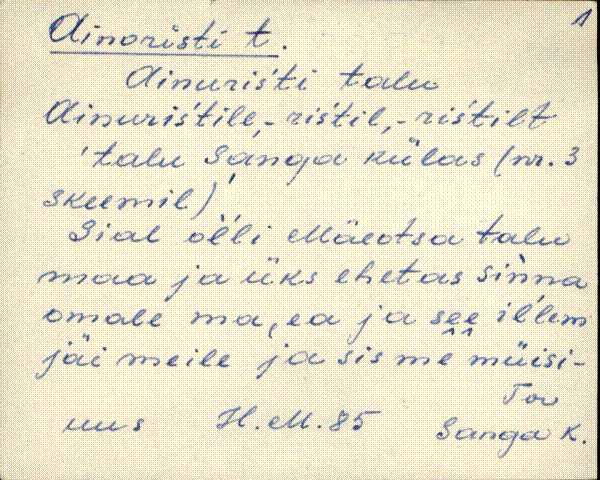 1
Ainoristi t.
Ainuriśti talu
Ainuriśtile, -riśtil, -riśtilt
'talu Sanga külas (nr. 3
skeemil)
Sial olli Mäeotsa talu
maa ja üks ehetas sinna
omale ma,ea ja see illem
jäi meile ja sis me müisi-
Tov
mus H.M. 85 Sanga k.